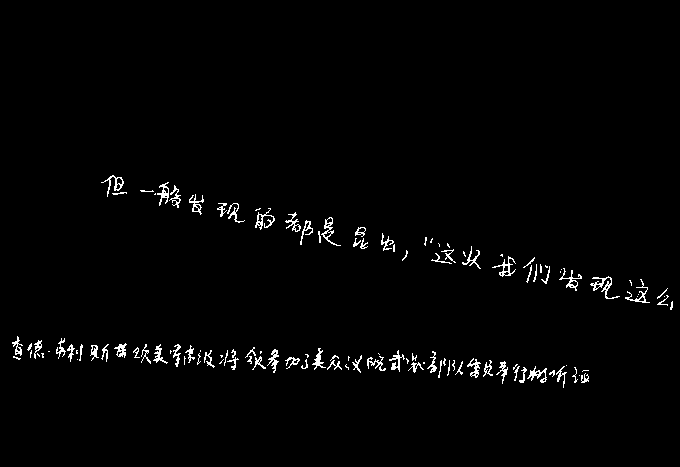 但一般发现的都是昆虫，“这次我们发现这么
查德·苏利斯 美军 将 参加了美众议院武装部队委员举行的听证